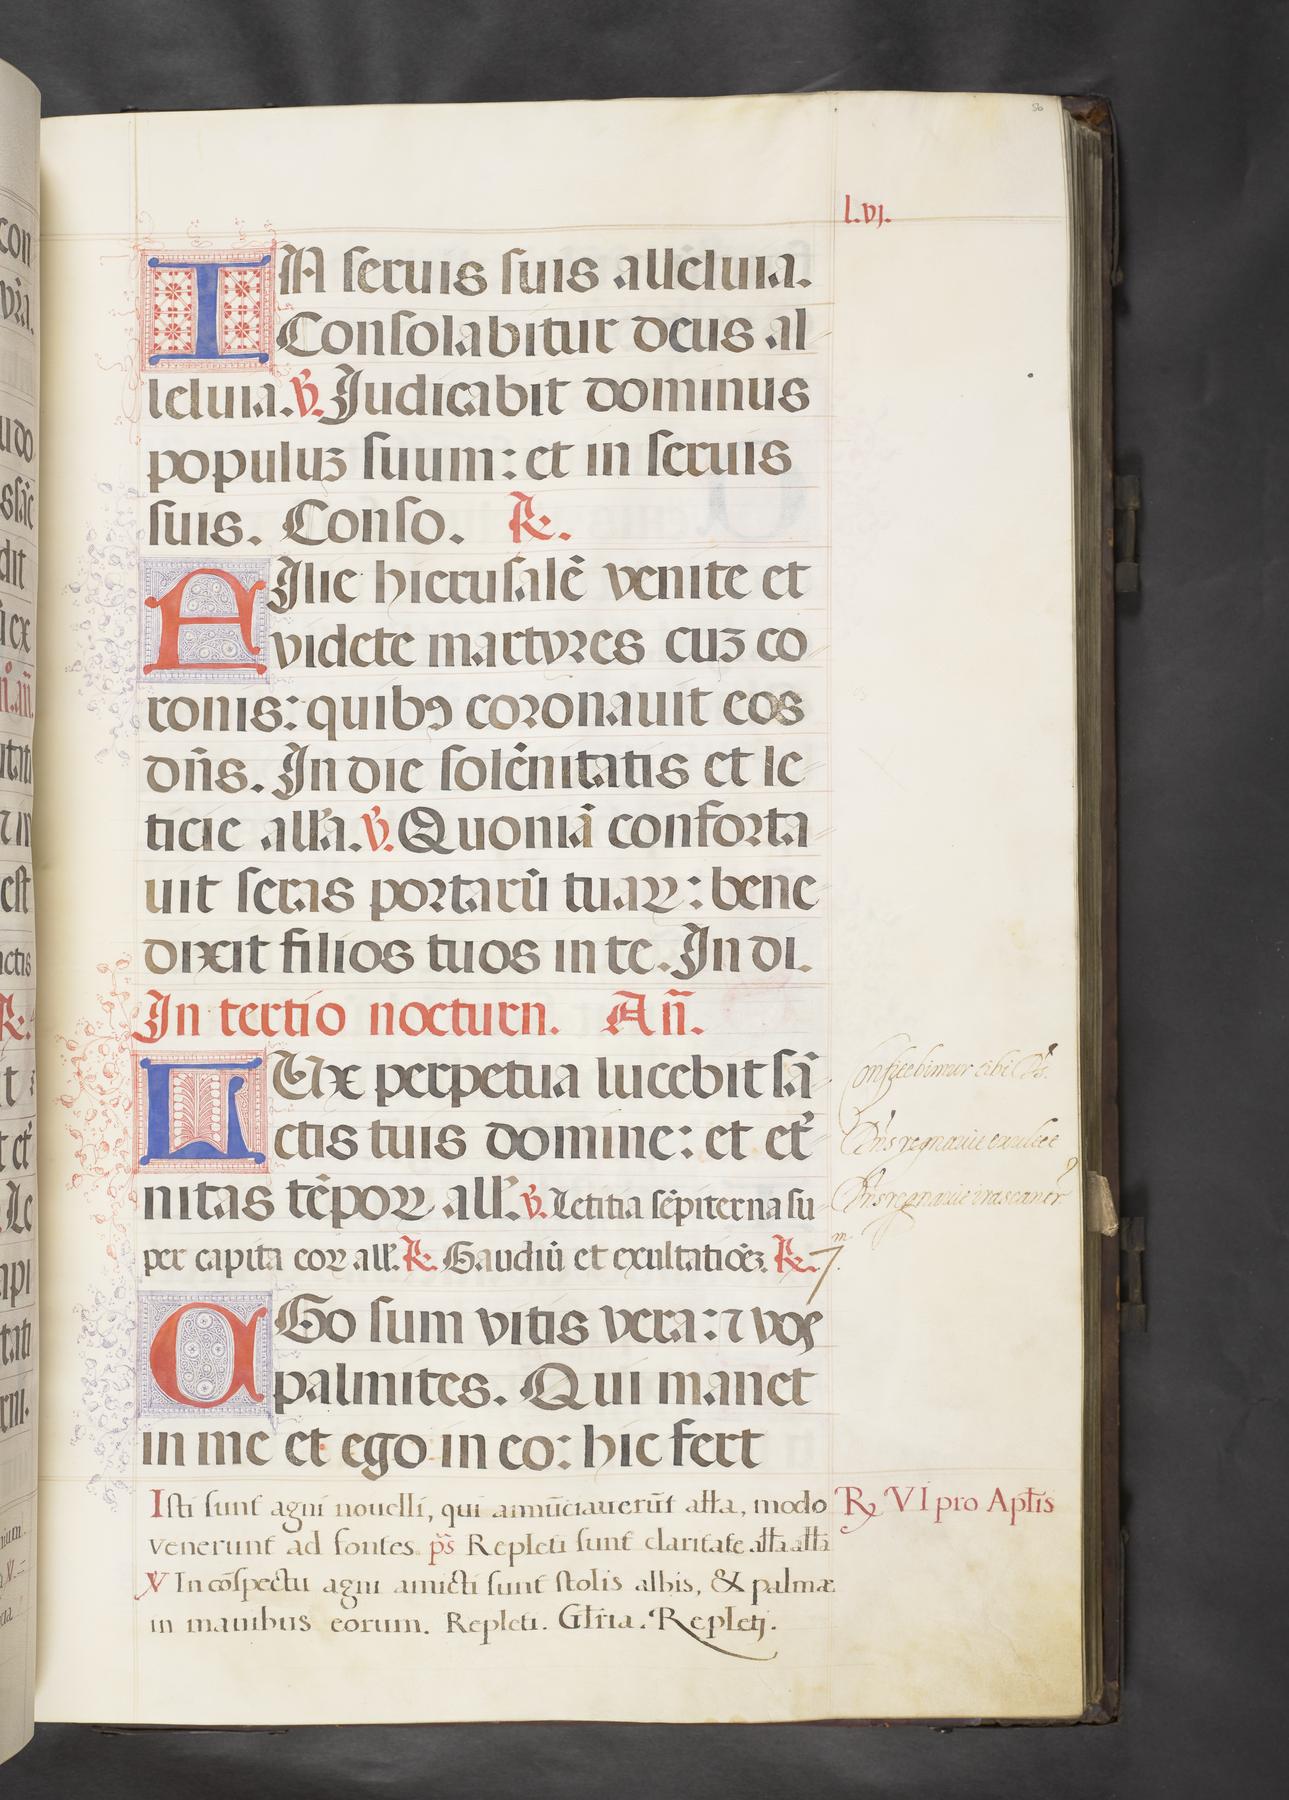 56
l.vj.
IN seruis suis alleluia.
Consolabitur deus al
leluia. ℣. Judicabit dominus
populuꝫ suum: et in seruis
suis. Conso. ℟.
FIlie hierusalē venite et
videte martyres cuꝫ co
ronis: quibꝯ coronauit eos
dn̄s. In die solēnitatis et le
ticie all'a. ℣. Quoniā conforta
uit seras portarū tuaꝝ: bene
dixit filios tuos in te. In di.
In tertio nocturn. An̄.
LUx perpetua lucebit sā
ctis tuis domine: et et'
nitas tēpoꝝ all'. ℣. Letitia sēpiterna su
per capita eoꝝ all'. ℟. Gaudiū et exultatiōeꝫ. ℟. 7.m
EGo sum vitis vera: ⁊ vos
palmites. Qui manet
in me et ego in eo: hic fert
Isti sunt agni nouelli, qui annūciauerūt alľa, modo
venerunt ad fontes. ps̄ Repleti sunt claritate alľa alľa
V In cōspectu agni amicti sunt stolis albis, & palmæ
in manibus eorum. Repleti. Glria. Repletj.
Confitebimur tibi Ds.
Dn̄s regnauit exultet
Dn̄s regnauit irascantr
℟ VI pro Aptis